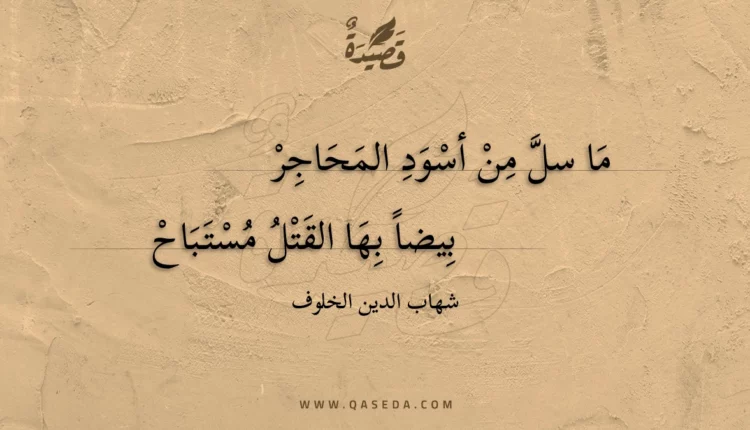 قَصِيدَةٌ
مَا سلَّ مِنْ أسْوَدِ المَحَاجِرْ
بِيضاً بِهَا القَتْلُ مُسْتَبَاحْ
شهاب الدين الخلوف
WWW.QASEDA.COM